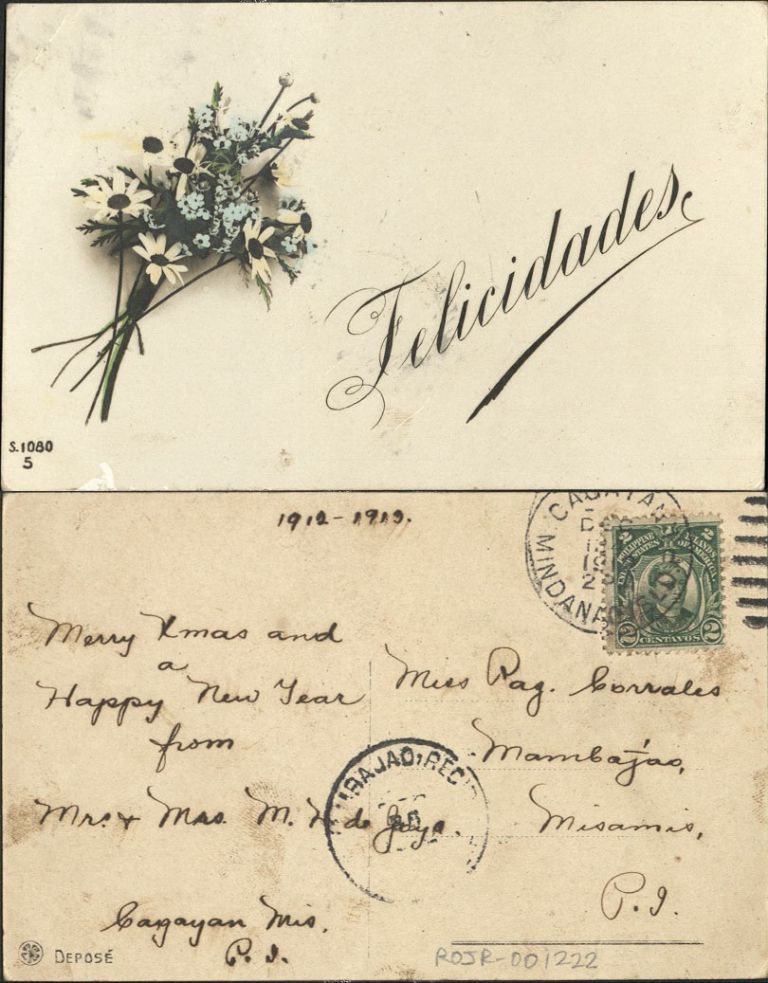 Felicidades
S.1080
5
1912-1913.
CAGAYAN
MINDANAO
PHILIPPINE ISLANDS
UNITED STATES OF AMERICA
2 CENTAVOS 2
Merry Xmas and
a
Happy New Year
from
Mr. & Mrs. M. H. de Joya.
Cagayan Mis.
P. I.
Miss Pag. Corrales
Mambajao,
Misamis,
P. I.
MAMBAJAO, REC'D
DEPOSÉ
ROJR-001222